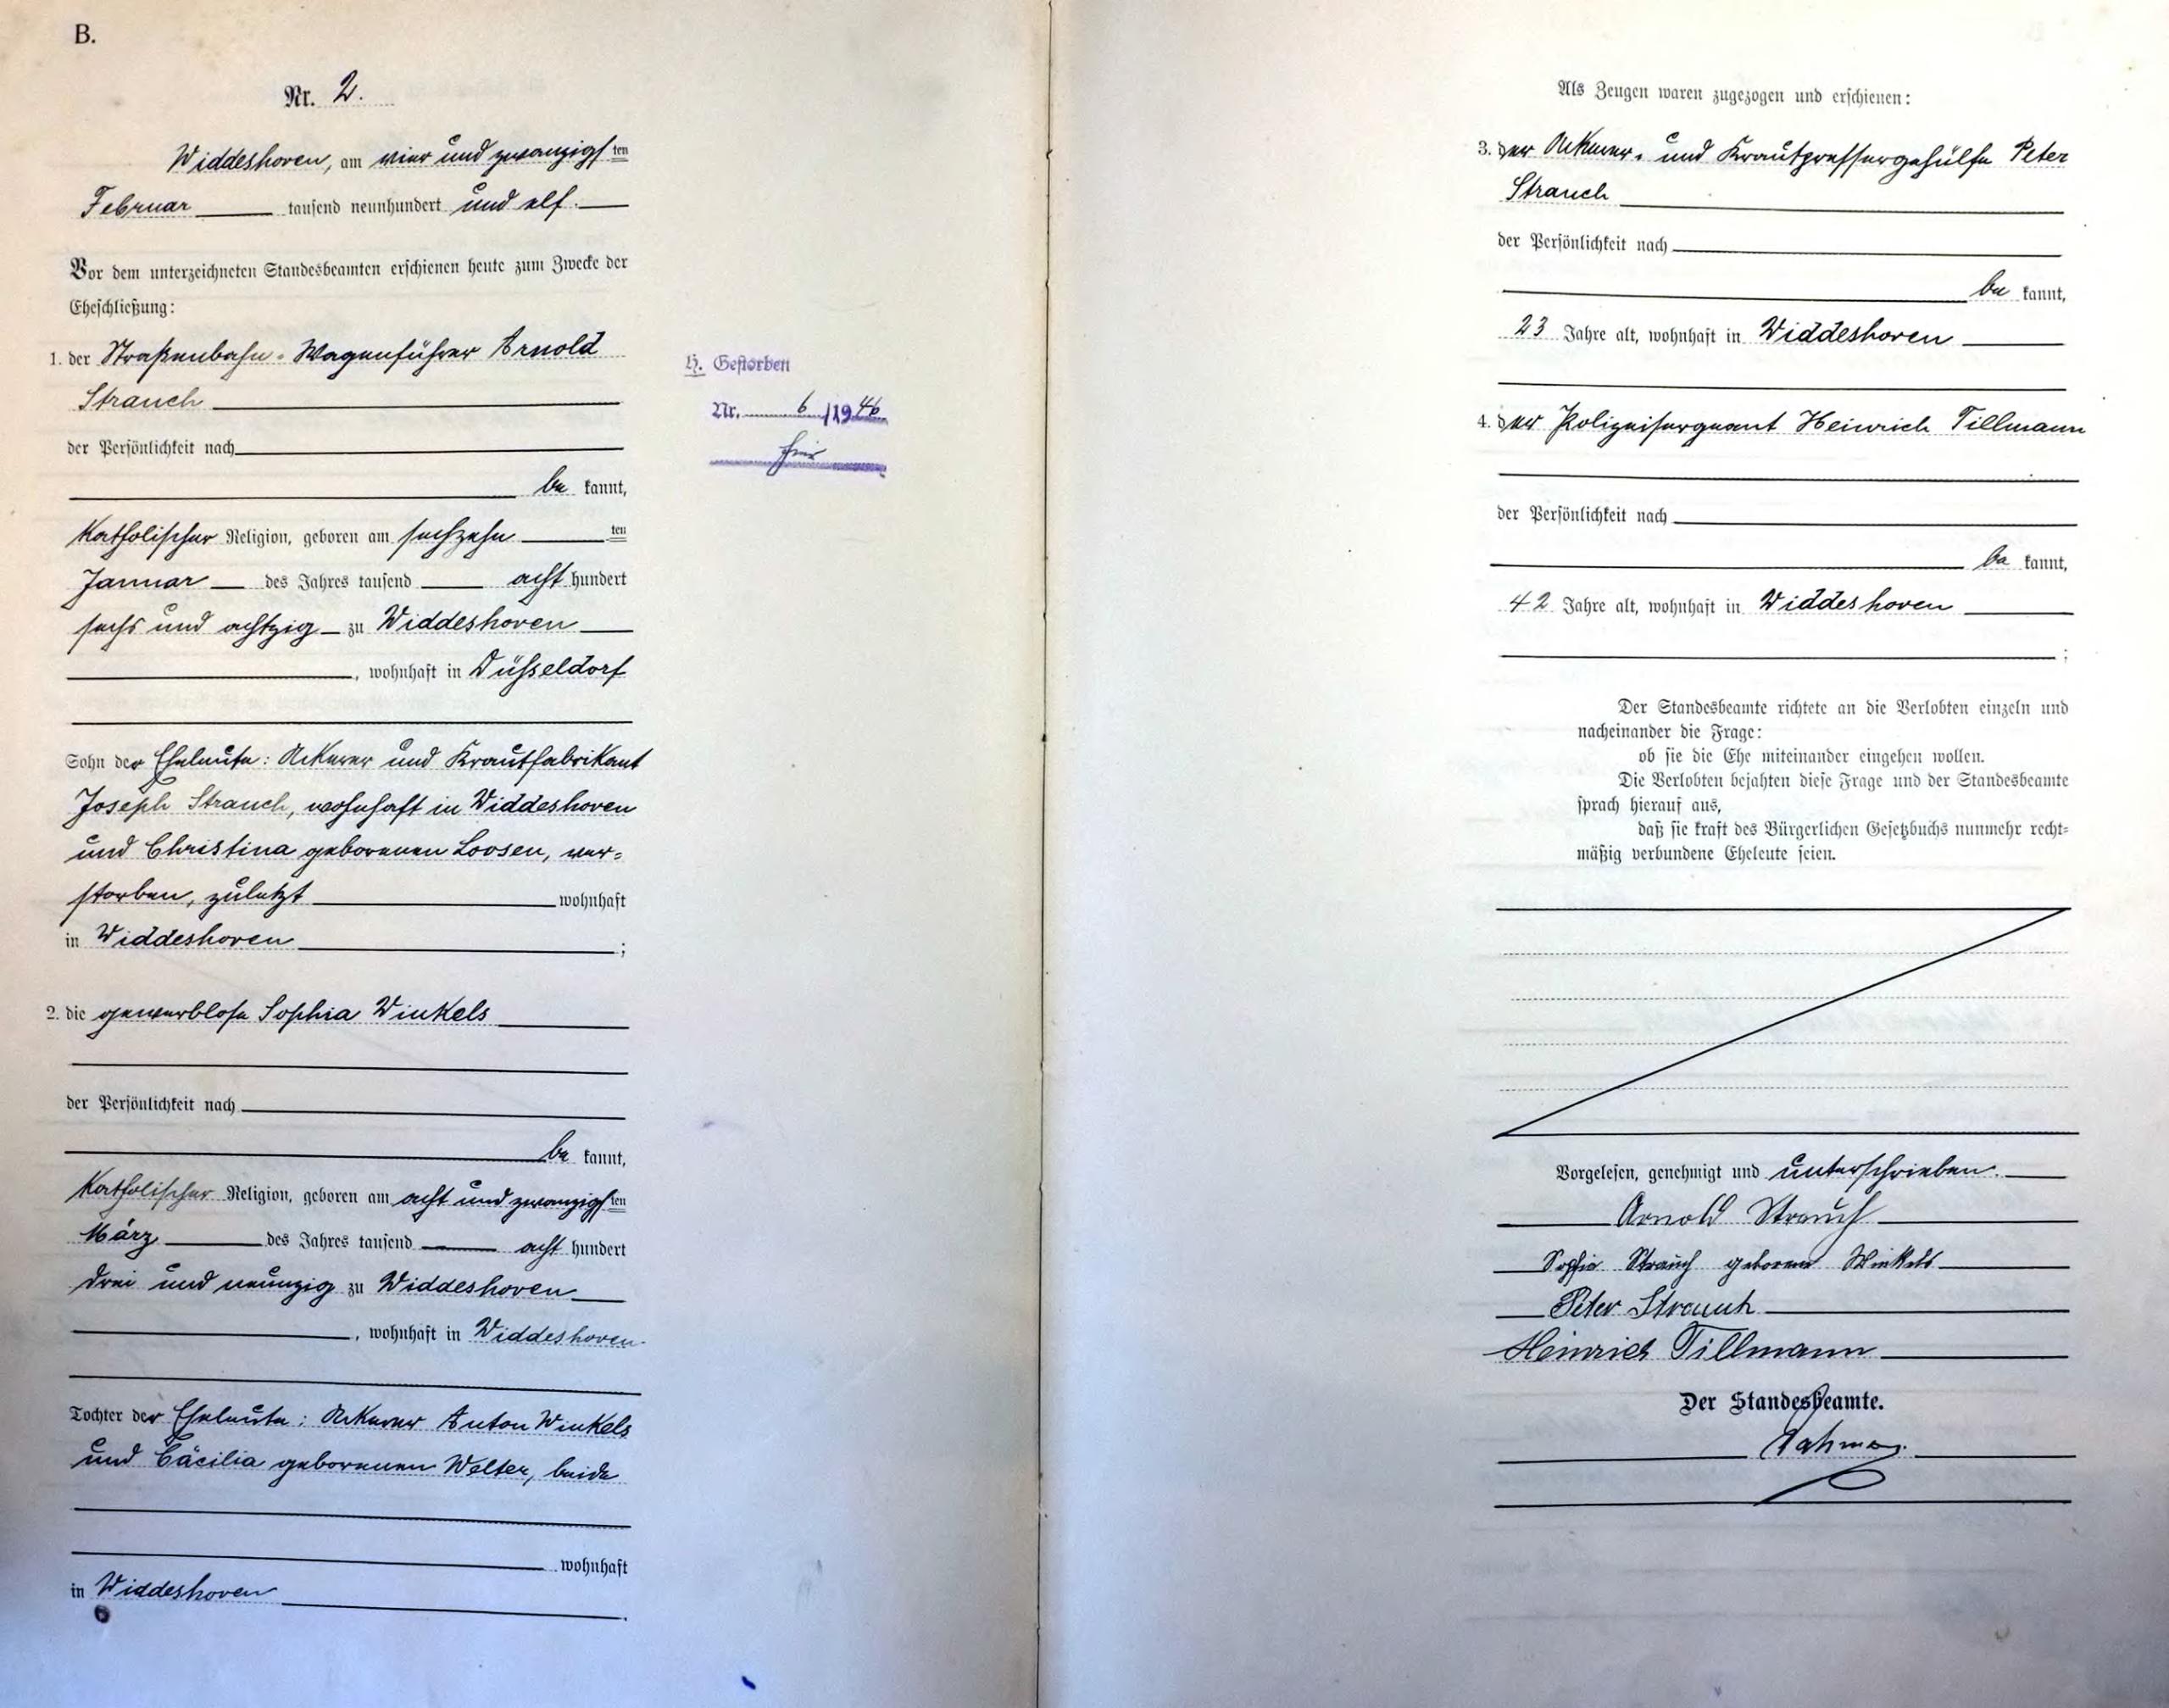 B.
Nr. 2.
Widdeshoven, am vier und zwanzigsten
Februar tausend neunhundert und elf.
Vor dem unterzeichneten Standesbeamten erschienen heute zum Zwecke der
Eheschließung:
1. der Straßenbahn-Wagenführer Arnold
Strauch
der Persönlichkeit nach
be kannt,
katholischer Religion, geboren am sechzehn ten
Januar des Jahres tausend acht hundert
sechs und achtzig zu Widdeshoven
, wohnhaft in Düsseldorf
Sohn der Eheleute: Ackerer und Krautfabrikant
Joseph Strauch, wohnhaft in Widdeshoven
und Christina geborenen Loosen, ver=
storben, zuletzt wohnhaft
in Widdeshoven ;
2. die gewerblose Sophia Winkels
der Persönlichkeit nach
be kannt,
katholischer Religion, geboren am acht und zwanzigsten
März des Jahres tausend acht hundert
drei und neunzig zu Widdeshoven
, wohnhaft in Widdeshoven
Tochter der Eheleute: Ackerer Anton Winkels
und Cäcilia geborenen Welter, beide
wohnhaft
in Widdeshoven .
H. Gestorben
Nr. 6/1946
hier
Als Zeugen waren zugezogen und erschienen:
3. der Ackerer- und Krautpressergehülfe Peter
Strauch
der Persönlichkeit nach
be kannt,
23 Jahre alt, wohnhaft in Widdeshoven
4. der Polizeisergeant Heinrich Tillmann
der Persönlichkeit nach
be kannt,
42 Jahre alt, wohnhaft in Widdeshoven
;
Der Standesbeamte richtete an die Verlobten einzeln und
nacheinander die Frage:
ob sie die Ehe miteinander eingehen wollen.
Die Verlobten bejahten diese Frage und der Standesbeamte
sprach hierauf aus,
daß sie kraft des Bürgerlichen Gesetzbuchs nunmehr recht=
mäßig verbundene Eheleute seien.
Vorgelesen, genehmigt und unterschrieben.
Arnold Strauch
Sophia Strauch geborene Winkels
Peter Strauch
Heinrich Tillmann
Der Standesbeamte.